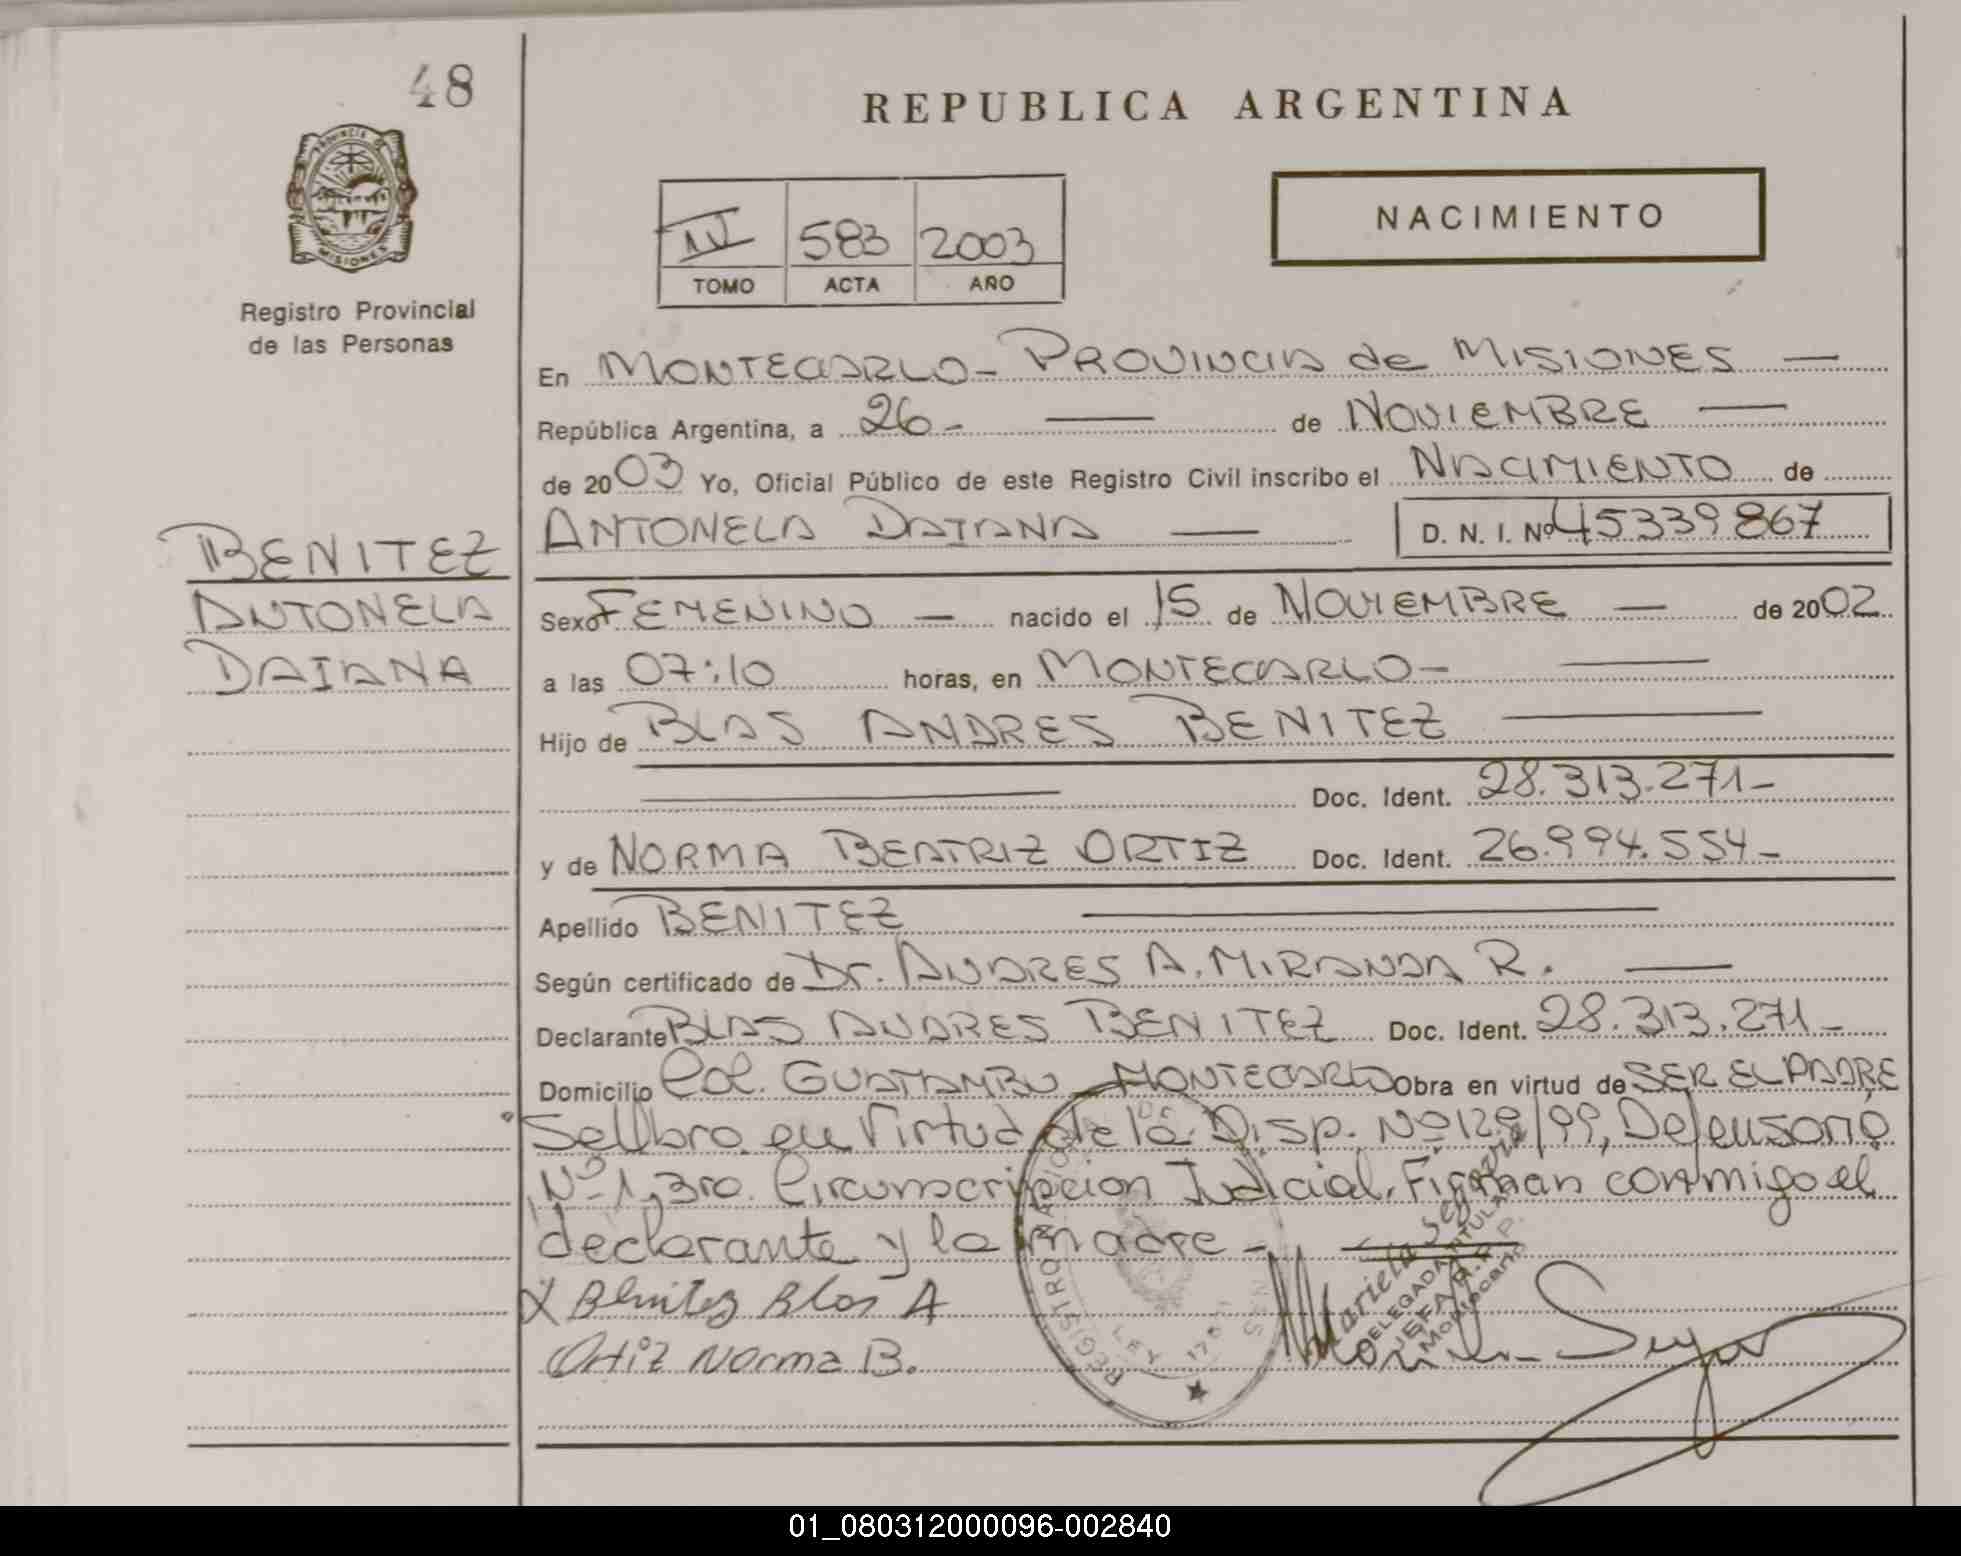 48
REPUBLICA ARGENTINA
PROVINCIA DE
MISIONES
Registro Provincial
de las Personas
IV 583 2003
TOMO ACTA AÑO
NACIMIENTO
En MONTECARLO - PROVINCIA de MISIONES —
República Argentina, a 26 - — de NOVIEMBRE —
de 2003 Yo, Oficial Público de este Registro Civil inscribo el NACIMIENTO de
ANTONELA DAIANA — D. N. I. Nº 45339867
BENITEZ
ANTONELA
DAIANA
Sexo FEMENINO — nacido el 15 de NOVIEMBRE — de 2002
a las 07:10 horas, en MONTECARLO - —
Hijo de BLAS ANDRES BENITEZ —
— Doc. Ident. 28.313.271 -
y de NORMA BEATRIZ ORTIZ Doc. Ident. 26.994.554 -
Apellido BENITEZ —
Según certificado de Dr. ANDRES A. MIRANDA R. —
Declarante BLAS ANDRES BENITEZ Doc. Ident. 28.313.271 -
Domicilio Col. GUATAMBU - MONTECARLO Obra en virtud de SER EL PADRE
Se labro en virtud de la Disp. Nº 128/99, Defensoria
Nº 1, 3ra. Circunscripcion Judicial. Firman conmigo el
declarante y la madre -
X Benitez Blas A
Ortiz Norma B.
REGISTRO
LEY
Mariela Segovia
DELEGADA TITULAR
Montecarlo
01_080312000096-002840